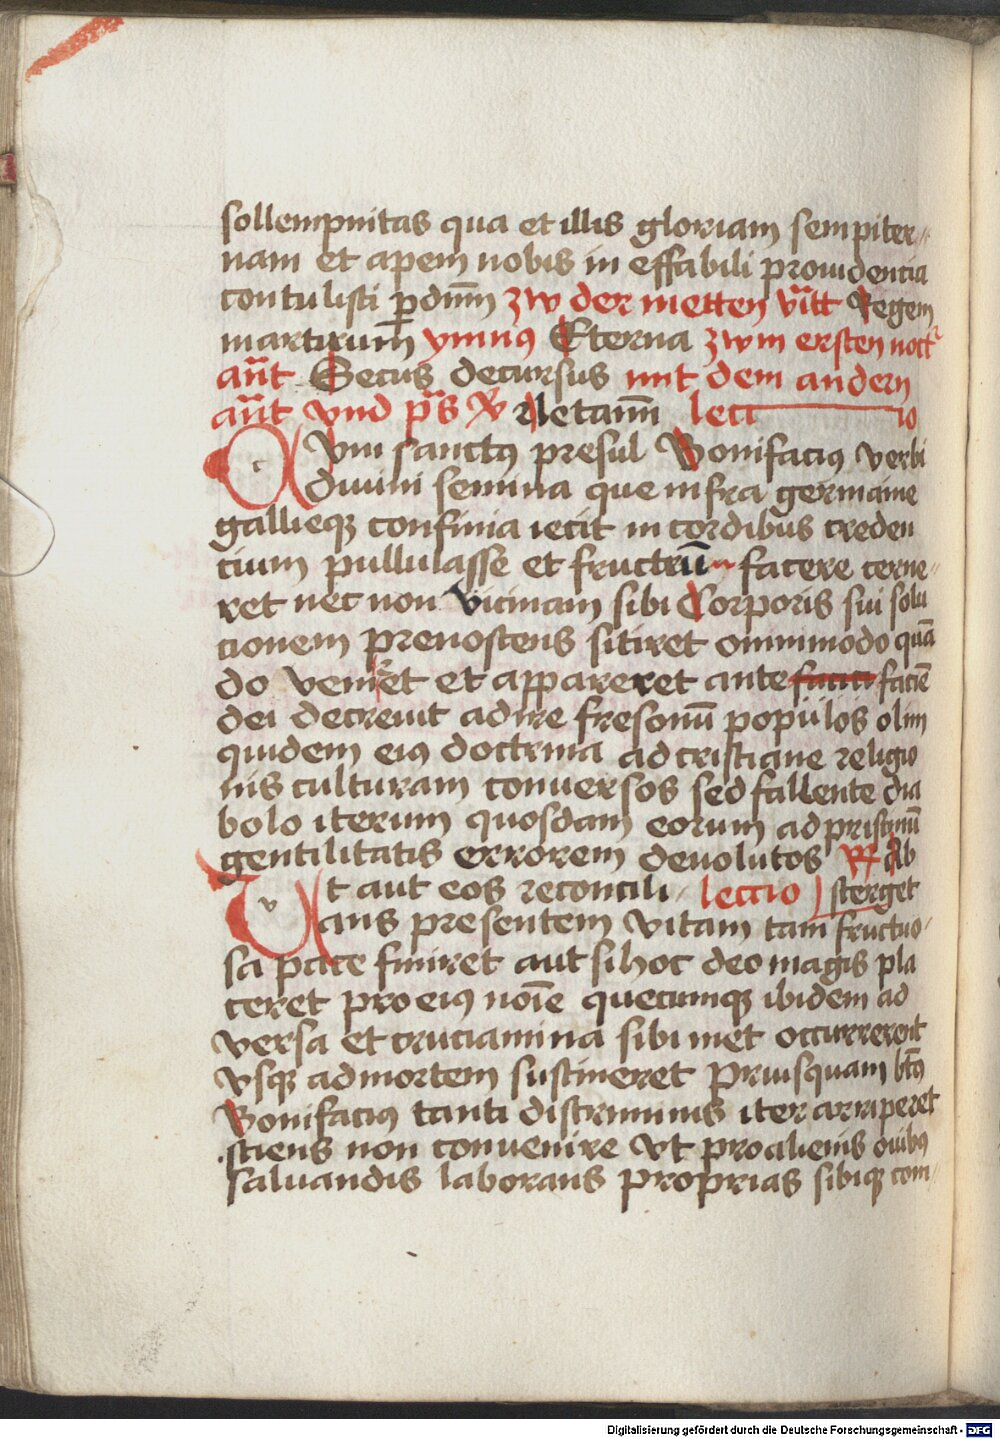 sollempnitas qua et illis gloriam sempiter-
nam et apem nobis in effabili prouidencia
contulisti p dnm zw der metten Regem
martirum ymnus Eterna zwm ersten noct
ant Secus decursus mit dem andern
ant vnd ps Letamini lectio
Cvm sanctus presul Bonifacius verbi
diuini semina que infra germanie
gallieque confinia iecit in cordibus creden
cium pullulasse et fructum facere cerne-
ret nec non vicinam sibi Corporis sui solu
cionem prenoscens sitiret ommimodo quan
do veniret et appareret ante faciē
dei decreuit adire fresonū populos olim
quidem eius doctrina ad cristiane religio
nis culturam conuersos sed fallente dia
bolo iterum quosdam eorum ad pristinū
gentilitatis errorem deuolutos R Ab
Vt aut eos reconcili- lectio sterget
ans presentem vitam tam fructuo-
sa pace finiret aut si hoc deo magis pla
ceret pro eius noīe quecumque ibidem ad
versa et cruciamina sibimet occurrerent
vsque ad mortem sustineret Priusquam btūs
Bonifacius tanti discriminis iter arriperet
sciens non convenire vt pro alienis ouibus
saluandis laborans proprias sibique com-
Digitalisierung gefördert durch die Deutsche Forschungsgemeinschaft - DFG